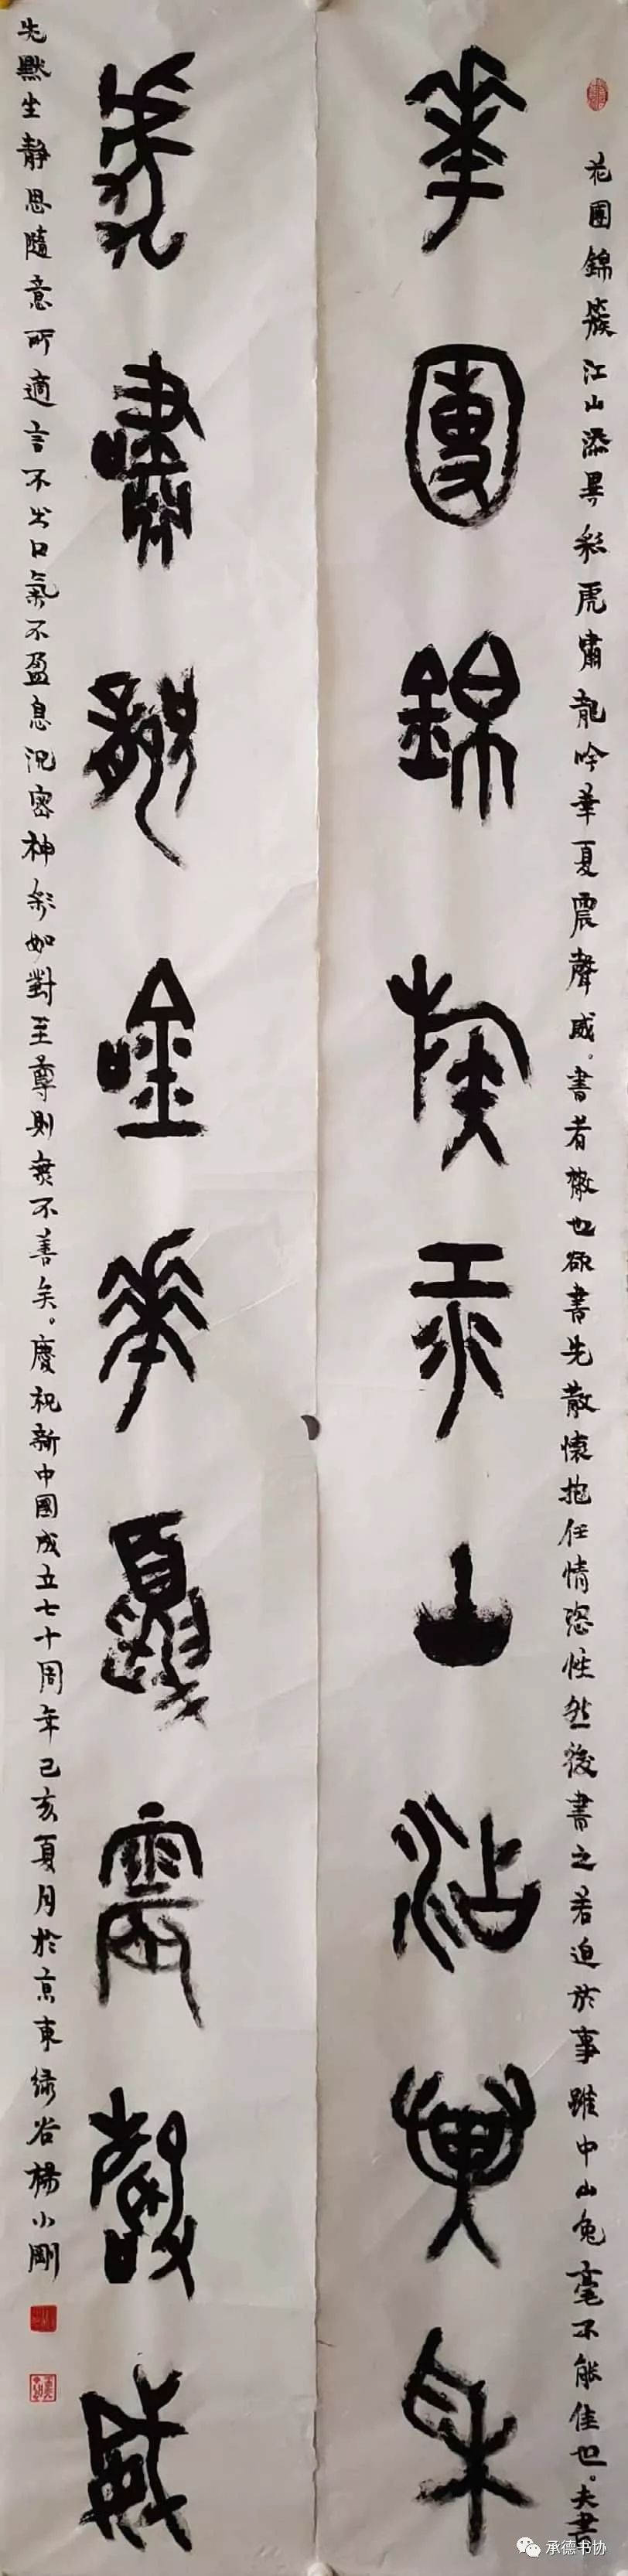 花團錦簇江山添異彩虎嘯龍吟華夏震聲威。書者散也欲書先散懷抱任情恣性然後書之若迫於事雖中山兔毫不能佳也。夫書
華團錦簇江山添異采
虎嘯龍唫華夏震聲威
先默坐靜思隨意所適言不出口氣不盈息沉密神彩如對至尊則無不善矣。慶祝新中國成立七十周年己亥夏月於京東綠谷楊小剛
承德书协